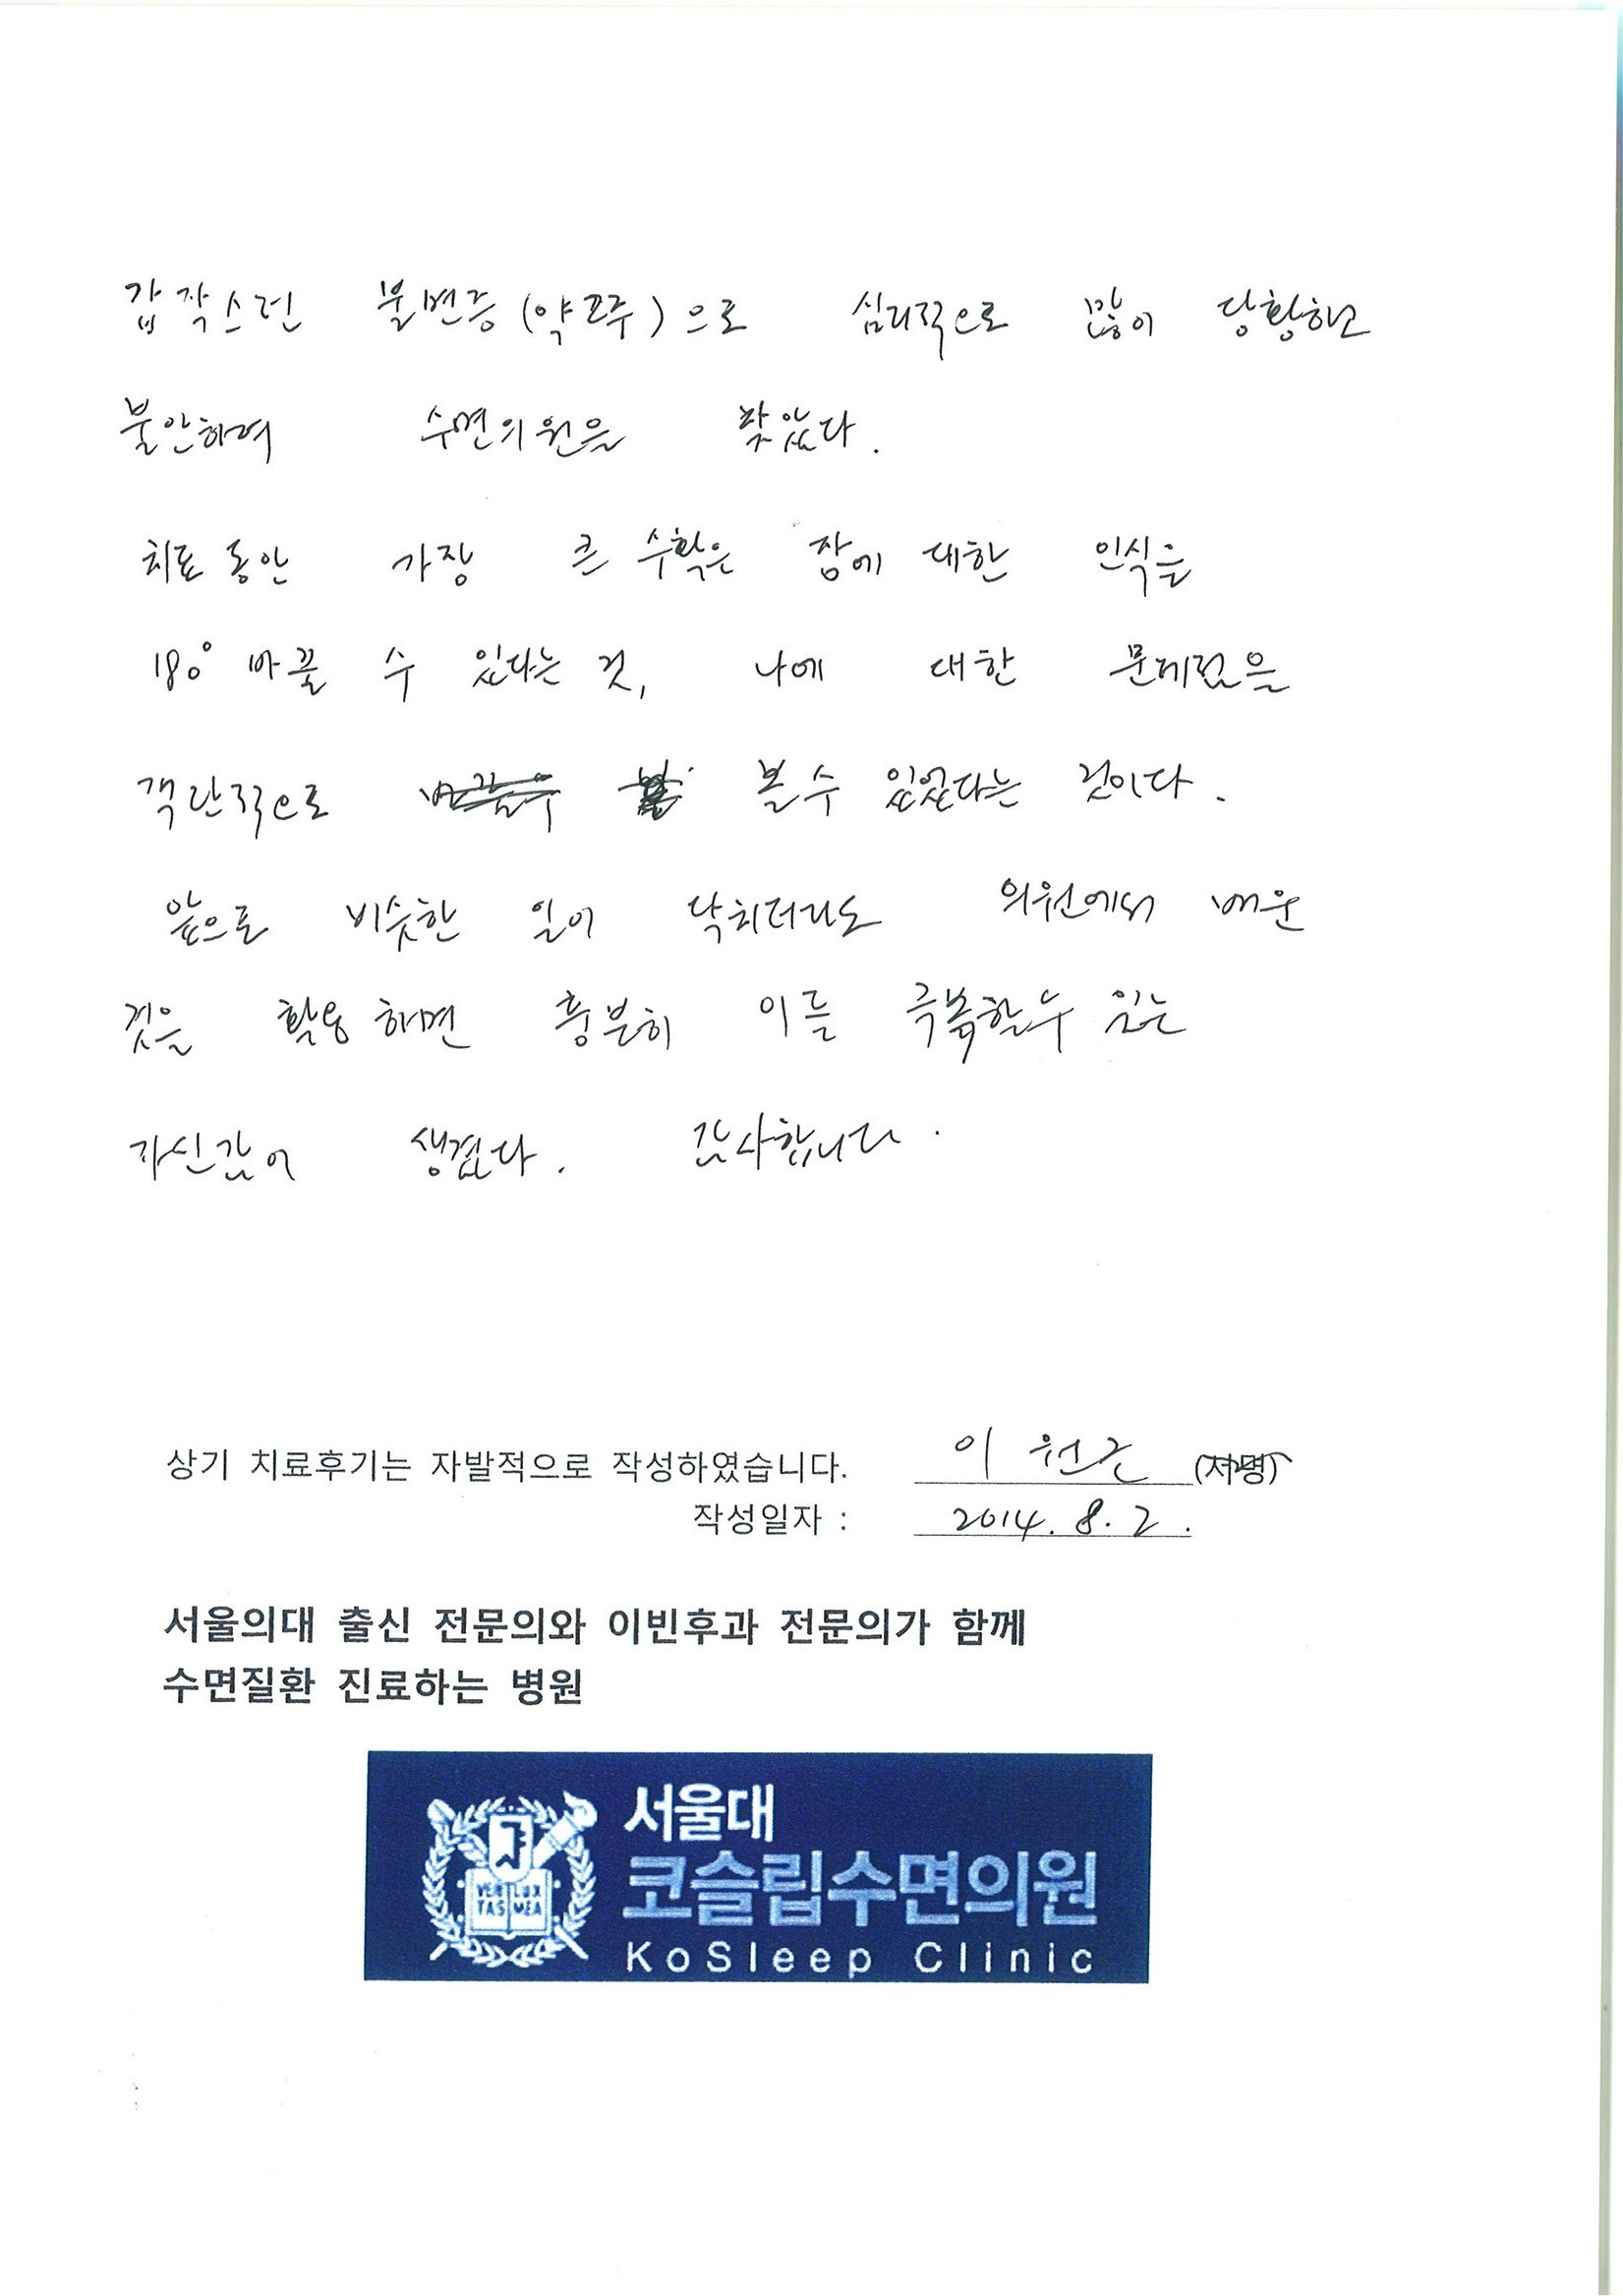 갑작스런 불면증(약 2주)으로 심리적으로 많이 당황하고
불안하여 수면의원을 찾았다.
치료 동안 가장 큰 수확은 잠에 대한 인식을
180° 바꿀 수 있다는 것, 나에 대한 문제점을
객관적으로 볼 수 있었다는 것이다.
앞으로 비슷한 일이 닥치더라도 의원에서 배운
것을 활용하면 충분히 이를 극복할 수 있는
자신감이 생겼다. 감사합니다.
상기 치료후기는 자발적으로 작성하였습니다. 이 원근
작성일자 : 2014. 8. 2.
서울의대 출신 전문의와 이빈후과 전문의가 함께
수면질환 진료하는 병원
서울대
코슬립수면의원
KoSleep Clinic
VERI LUX
TAS MEA